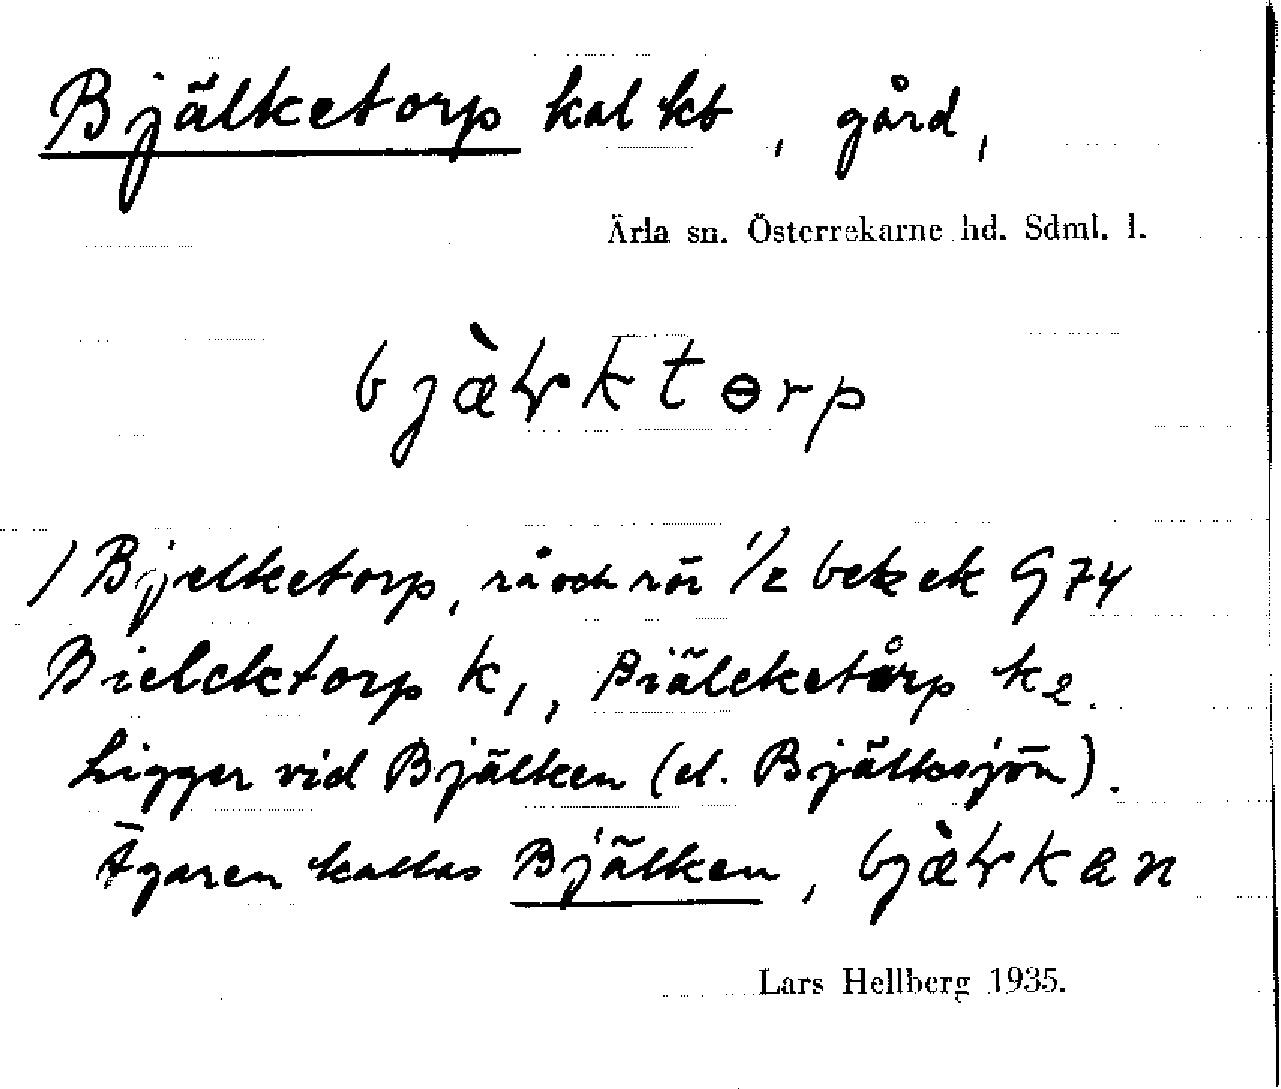 Bjälketorp kal kb, gård,
Ärla sn. Österrekarne hd. Sdml. l.
bjæ̀ɽktɵrp
/ Bjelketorp, rå och rör 1/2 bek ek G 74
Bielcktorp k1, Biälcketårp k2.
Ligger vid Bjälken (el. Bjälksjön).
Ägaren kallas Bjälken, bjæ̀ɽkan
Lars Hellberg 1935.